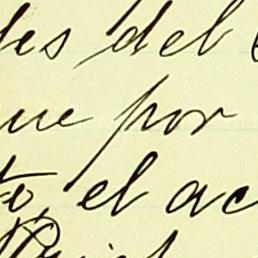 les del
ue por
to, el ac